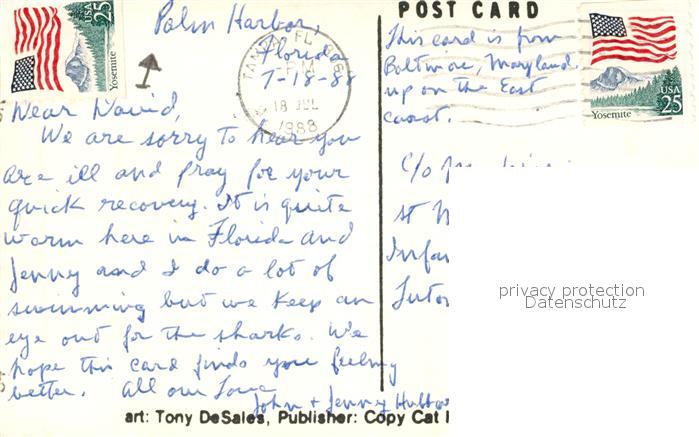 USA 25
Yosemite
Palm Harbor,
Florida
7-18-88
TAMPA, FL
18 JUL
1988
Dear David,
We are sorry to hear you
are ill and pray for your
quick recovery. It is quite
warm here in Florida and
Jenny and I do a lot of
swimming but we keep an
eye out for the sharks. We
hope this card finds you feeling
better. All our Love
John + Jenny
art: Tony DeSales, Publisher: Copy Cat
POST CARD
This card is from
Baltimore, Maryland
up on the East
coast.
USA 25
Yosemite
c/o
St
privacy protection
Datenschutz